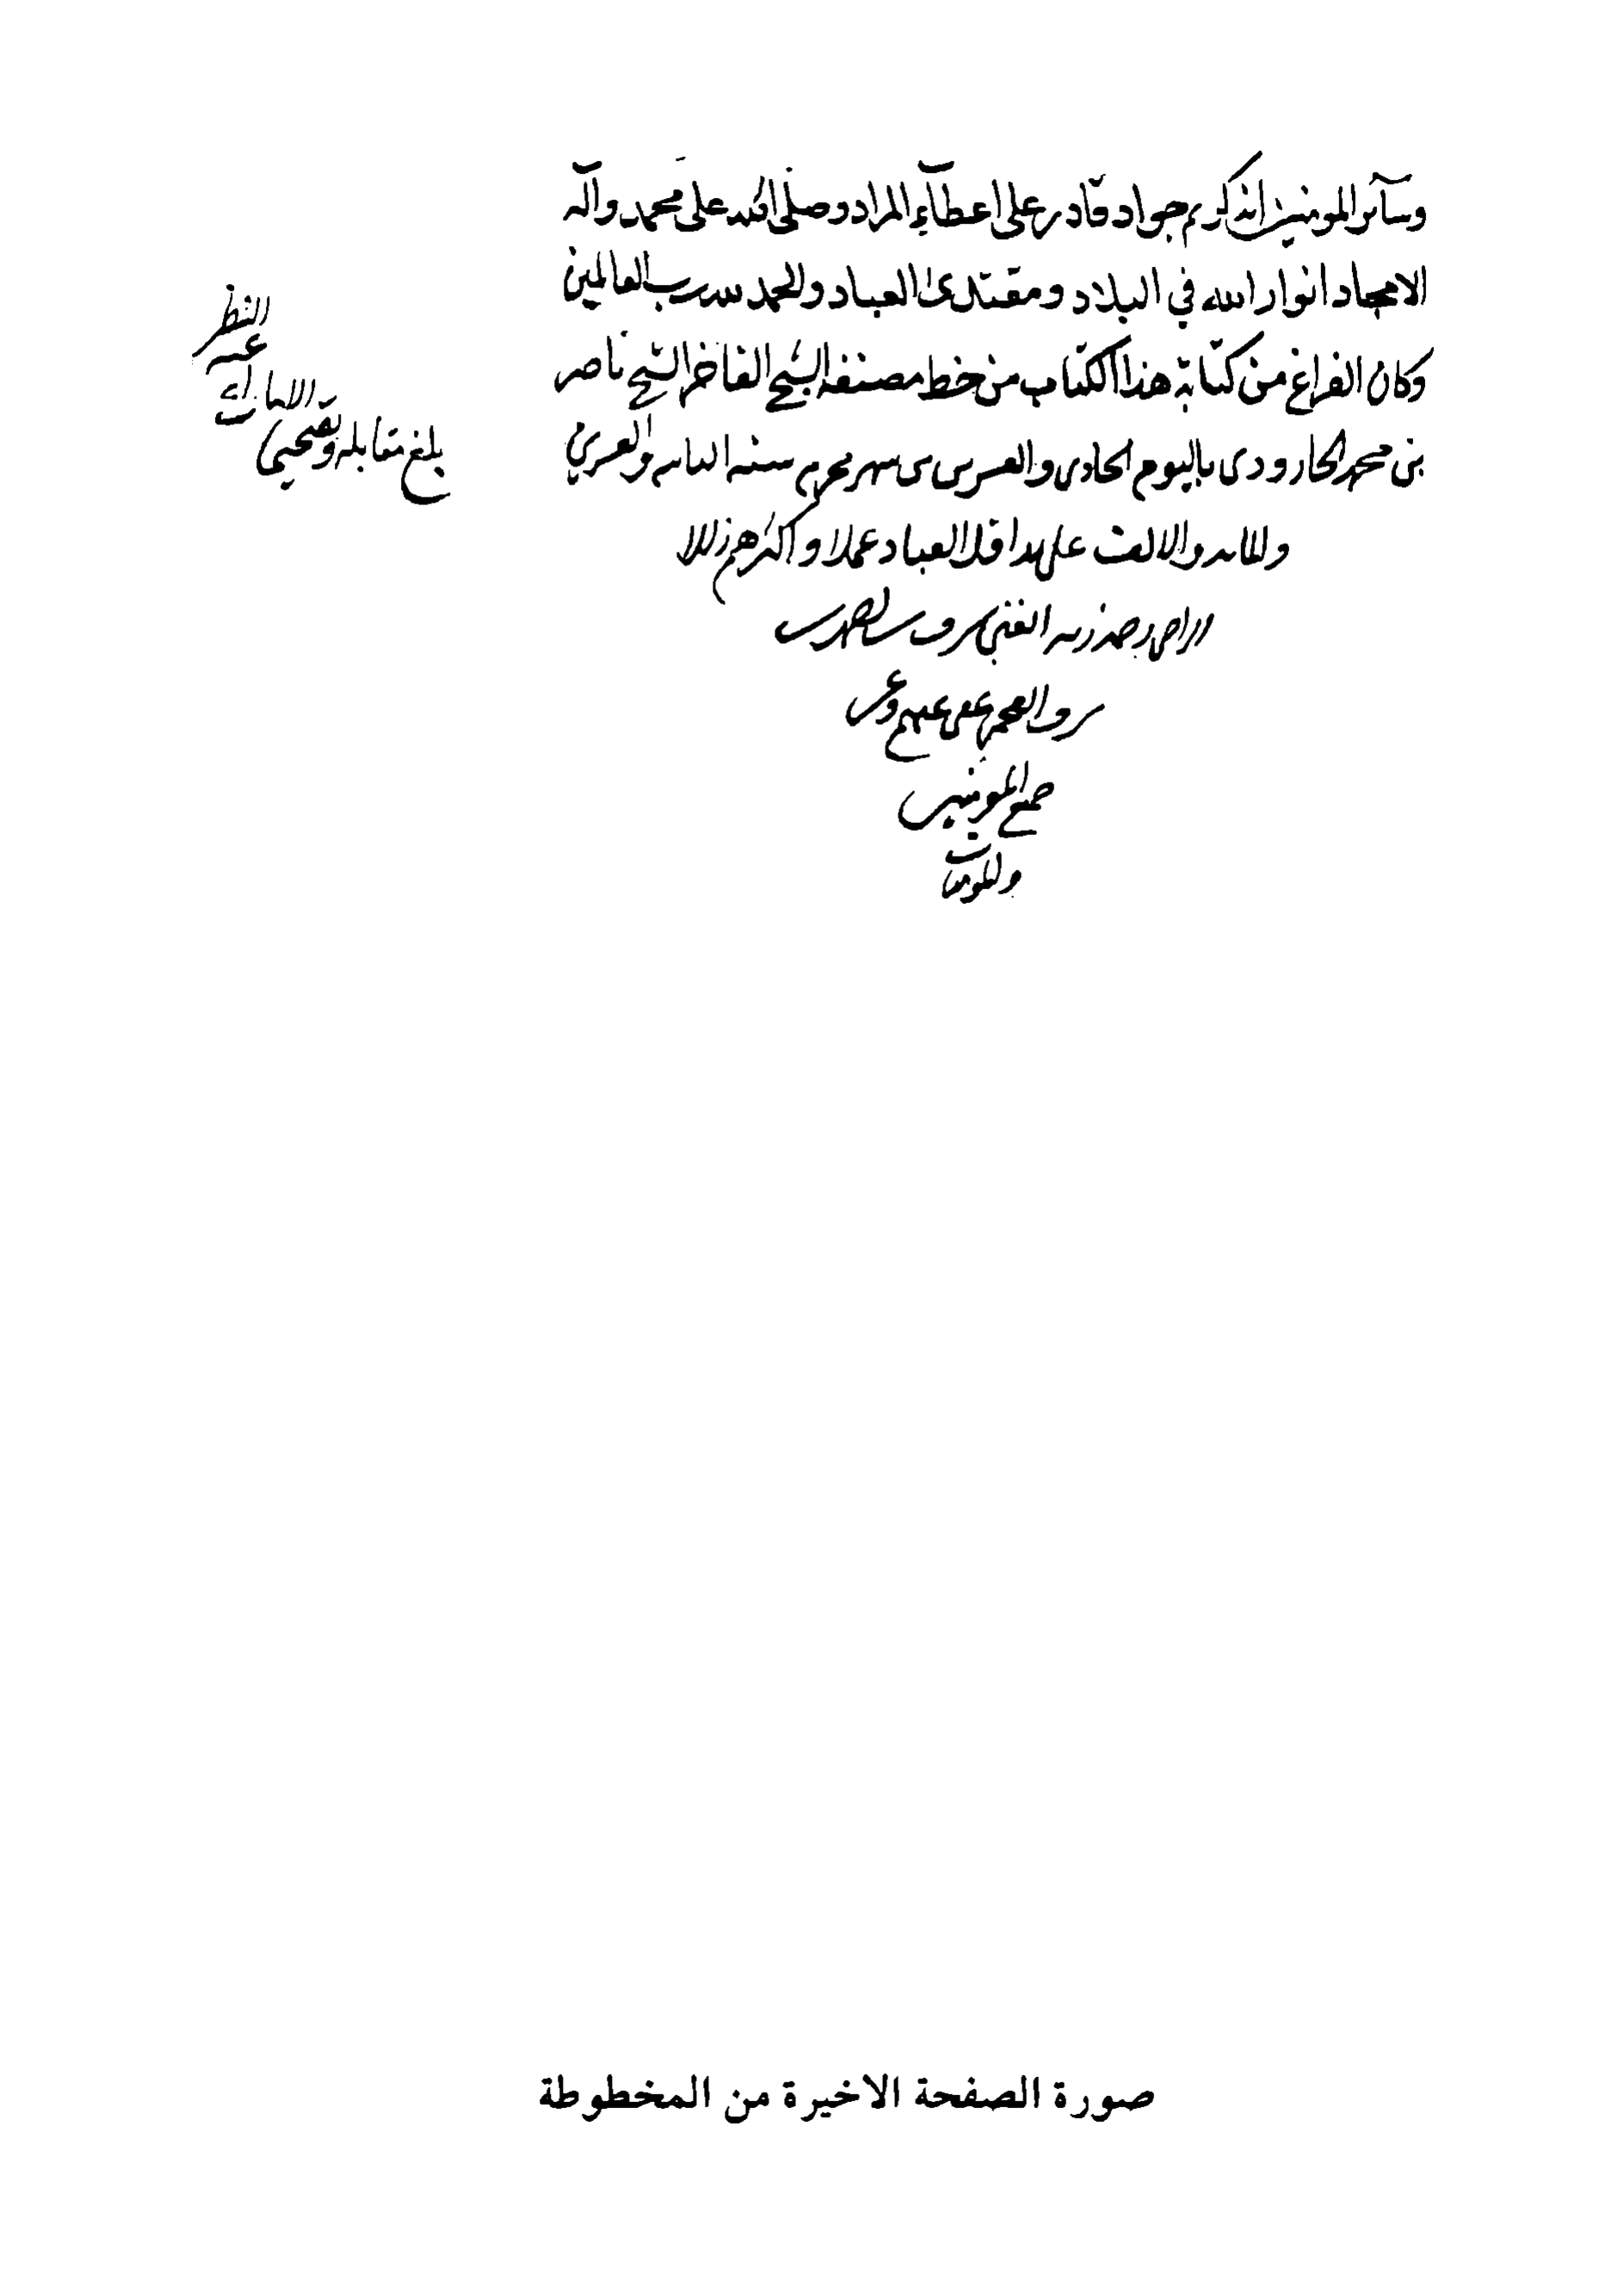 وسآئر المومنين انه كريم جواد قادر على اعطآء المراد وصلى الله على محمد وآله
الامجاد انوار الله في البلاد ومقتدى العباد والحمد لله رب العالمين
وكان الفراغ من كتابة هذا الكتاب من خط مصنفه الشيخ الفاخر الشيخ ناصر
بن محمد الجارودى باليوم الحادى والعسرين من سهر محرم سنه الثانيه والعسرين
والمايه والالف على يد اقل العباد عملا واكثرهم زللا
الغني
عفى عنهم وعن
جميع المومنين
والمومنات
بلغ مقابله وتصحيحا
الا ما زاغ
عنه
النظر
صورة الصفحة الاخيرة من المخطوطة